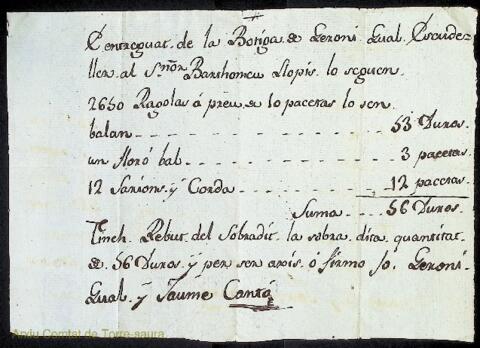 Centreguat de la Botiga de Geroni Gual Escude-
ller al Sñor Barthomeu Llopis lo seguen
2650 Ragolas á preu de 10 pacetas lo sen
balan 53 Duros.
un Moró bal 3 pacetas
12 Sarions y Corda 12 pacetas
Suma 56 Duros.
Tinch Rebut del Sobradit la sobra dita quantitat
de 56 Duros y per ser axis ó firmo Jo Geroni
Gual y Jaume Cantá
Arxiu Comtat de Torre-saura